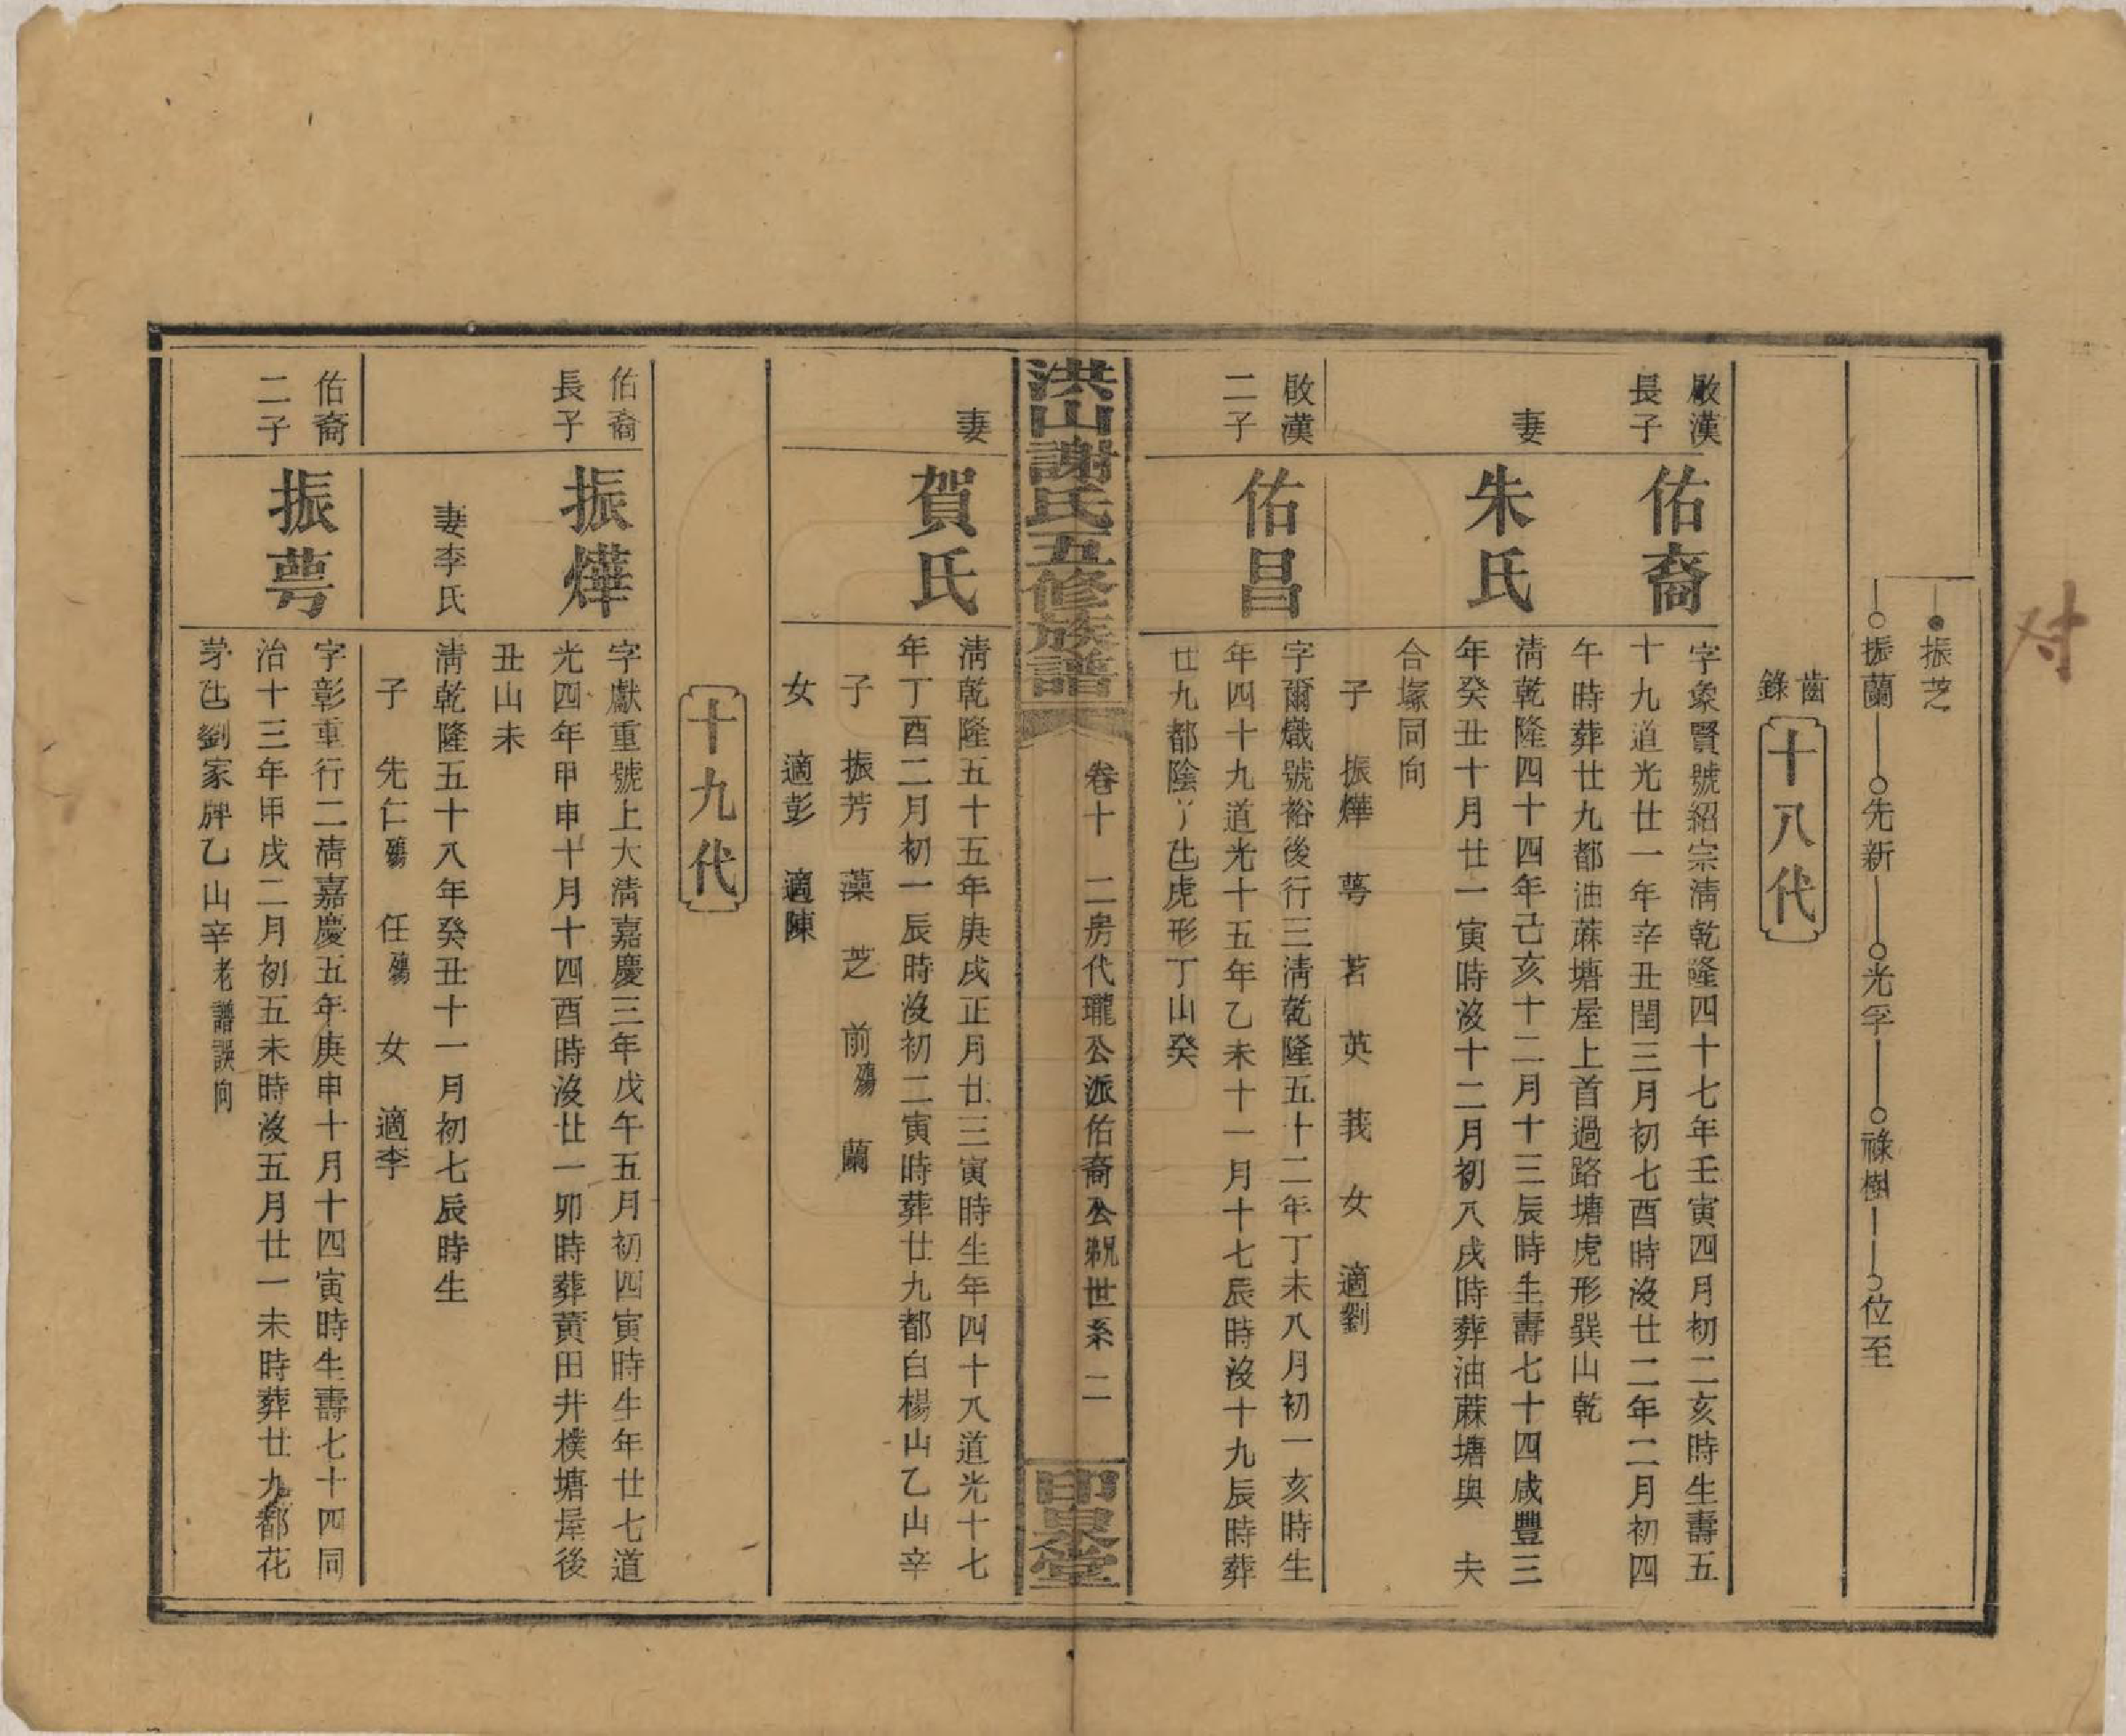 对
振芝
振蘭 先新 光孚 祿樹 位至
齒錄
十八代
啟漢長子
佑裔
字象賢號紹宗淸乾隆四十七年壬寅四月初二亥時生壽五
十九道光廿一年辛丑閏三月初七酉時沒廿二年二月初四
午時葬廿九都油蔴塘屋上首過路塘虎形巽山乾
妻
朱氏
淸乾隆四十四年己亥十二月十三辰時生壽七十四咸豐三
年癸丑十月廿一寅時沒十二月初八戌時葬油蔴塘與 夫
合塚同向
子 振燁 萼 茗 英 莪 女 適劉
啟漢二子
佑昌
字爾熾號裕後行三淸乾隆五十二年丁未八月初一亥時生
年四十九道光十五年乙未十一月十七辰時沒十九辰時葬
廿九都陰丫乪虎形丁山癸
洪山謝氏五修族譜
卷十 二房代瓏公派佑裔公䚂世系 二
印泉堂
妻
賀氏
淸乾隆五十五年庚戌正月廿三寅時生年四十八道光十七
年丁酉二月初一辰時沒初二寅時葬廿九都白楊山乙山辛
子 振芳 藻 芝 前殤 蘭
女 適彭 適陳
十九代
佑裔長子
振燁
字獻重號上大淸嘉慶三年戊午五月初四寅時生年廿七道
光四年甲申十月十四酉時沒廿一卯時葬黃田井樸塘屋後
丑山未
妻李氏
淸乾隆五十八年癸丑十一月初七辰時生
子 先仁殤 任殤 女 適李
佑裔二子
振萼
字彰重行二淸嘉慶五年庚申十月十四寅時生壽七十四同
治十三年甲戌二月初五未時沒五月廿一未時葬廿九都花
茅乪劉家牌乙山辛老譜誤向